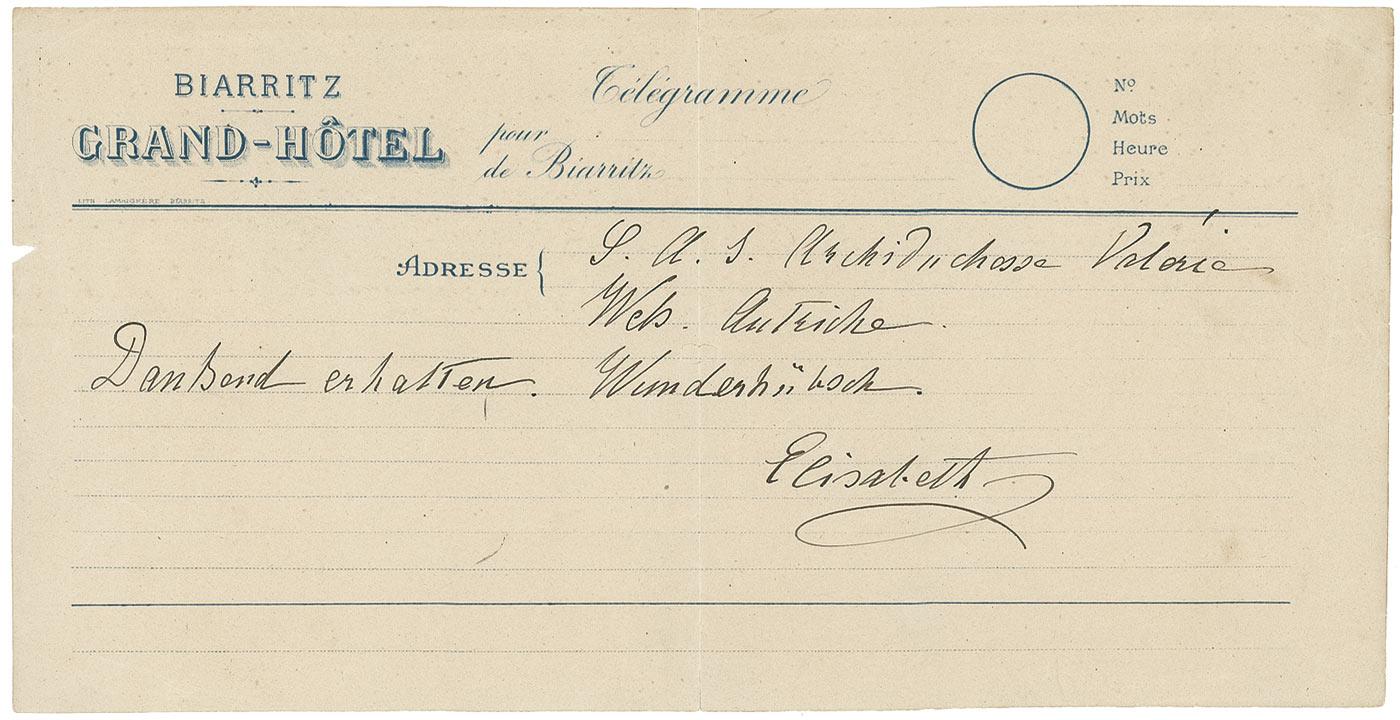 BIARRITZ
GRAND-HÔTEL
Télégramme
pour
de Biarritz
Nº
Mots
Heure
Prix
LITH LAMAIGNÈRE BIARRITZ
ADRESSE { S. A. I. Archiduchesse Valérie
Wels. Autriche.
Dankend erhalten. Wunderhübsch.
Elisabeth